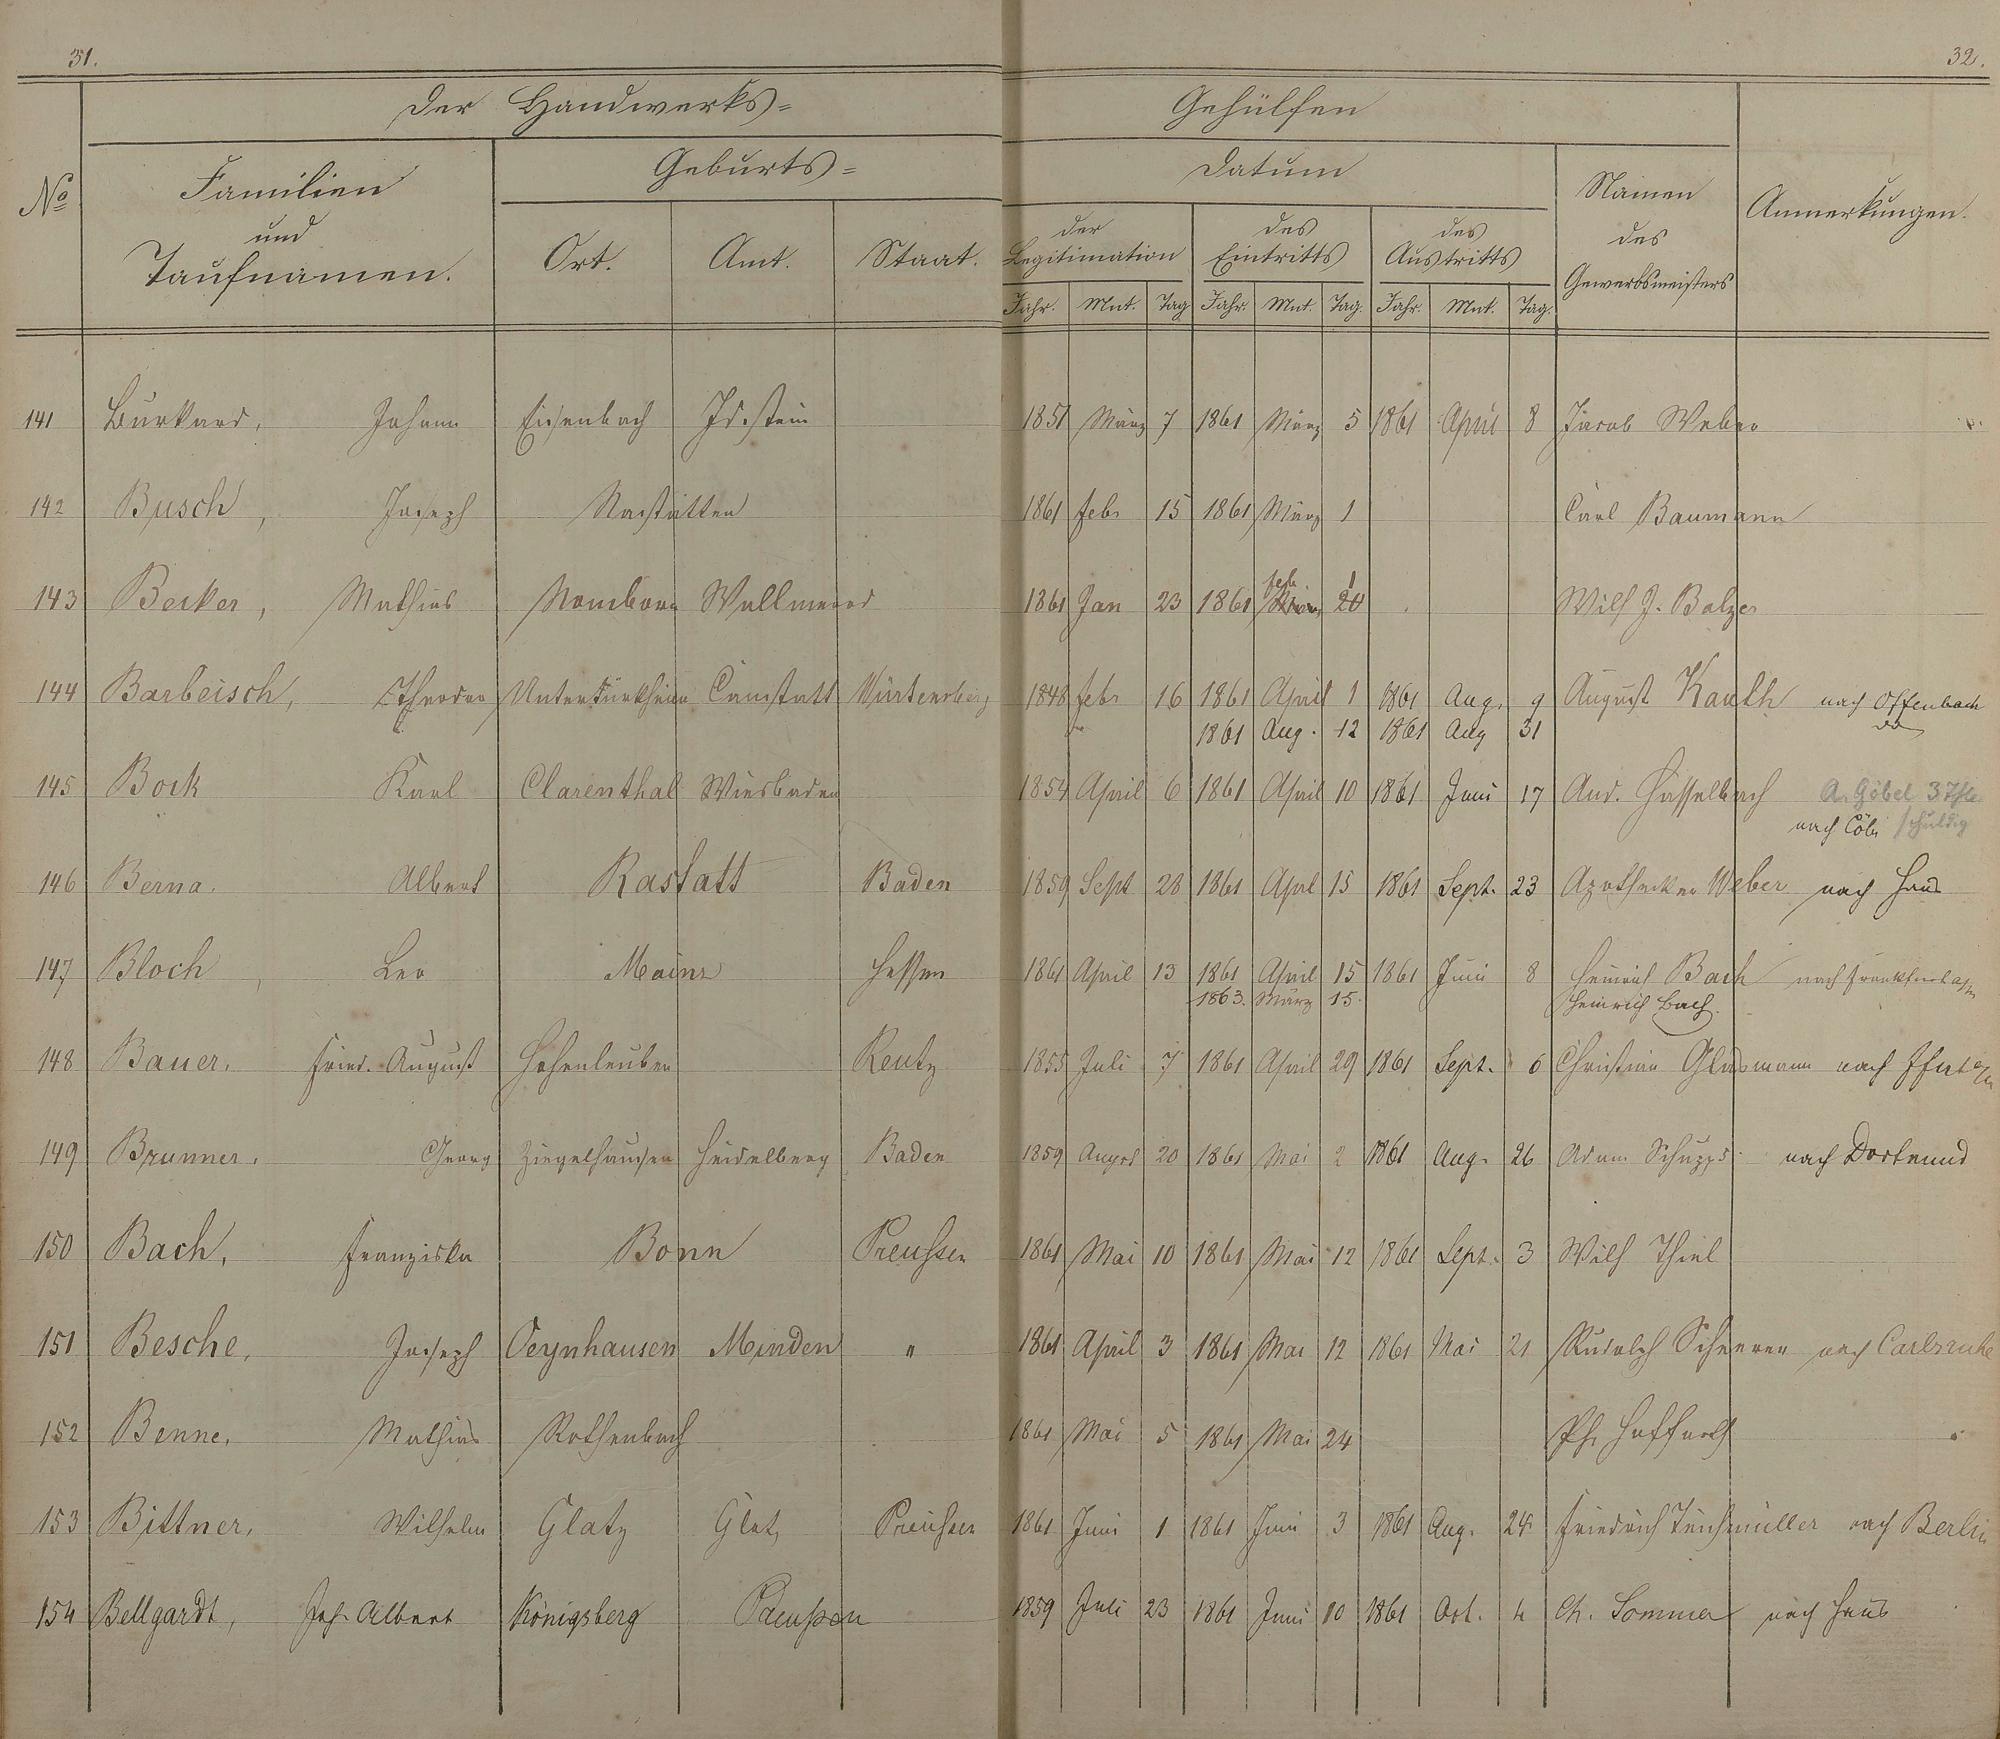 31.
32.
Der Handwerks=
Gehülfen
No
Familien
und
Taufnamen.
Geburts=
Ort.
Amt.
Staat.
Datum
der
Legitimation
des
Eintritts
des
Austritts
Jahr. Mnt. Tag Jahr. Mnt. Tag. Jahr. Mnt. Tag.
Namen
des
Gewerbsmeisters
Anmerkungen.
141 Burkard, Johann Eisenbach Idstein 1851 März 7 1861 März 5 1861 April 8 Jacob Weber
142 Busch, Joseph Nastätten 1861 Febr 15 1861 März 1 Carl Baumann
143 Becker, Mathias Nomborn Wallmerod 1861 Jan 23 1861 Feb 1 Wilh J. Balzer
144 Barbeisch, Theodor Untertürkheim Canstatt Würtemberg 1848 Febr 16 1861 April 1 1861 Aug. 9 August Kauth nach Offenbach
1861 Aug. 12 1861 Aug 31 do
145 Bock Karl Clarenthal Wiesbaden 1854 April 6 1861 April 10 1861 Juni 17 And. Hasselbach A. Göbel 3 Thlr
nach Cöln schuldig
146 Berna. Albert Rastatt Baden 1859 Sept 28 1861 April 15 1861 Sept. 23 Apothecker Weber nach Haus
147 Bloch, Leo Mainz Hessen 1861 April 13 1861 April 15 1861 Juni 8 Heinrich Bach nach Frankfurt a/m
1863. März 15. Heinrich Bach.
148 Bauer. Fried. August Hohenleuben Reutz 1855 Juli 7 1861 April 29 1861 Sept. 6 Christian Glasmann nach Ffurt a/m
149 Brunner. Georg Ziegelhausen Heidelberg Baden 1859 August 20 1861 Mai 2 1861 Aug. 26 Adam Schupp nach Dortmund
150 Bach, Franziska Bonn Preussen 1861 Mai 10 1861 Mai 12 1861 Sept. 3 Wilh Thiel
151 Besche, Joseph Oeynhausen Minden " 1861 April 3 1861 Mai 12 1861 Mai 21 Rudolph Scheurer nach Carlsruhe
152 Benne, Mathias Rothenbach 1861 Mai 5 1861 Mai 24 Ph. Haffneth
153 Bittner, Wilhelm Glatz Glatz Preussen 1861 Juni 1 1861 Juni 3 1861 Aug. 24 Friedrich Teichmüller nach Berlin
154 Bellgardt, Joh. Albert Königsberg Preussen 1859 Juli 23 1861 Juni 10 1861 Oct. 4 Ch. Sommer nach Haus